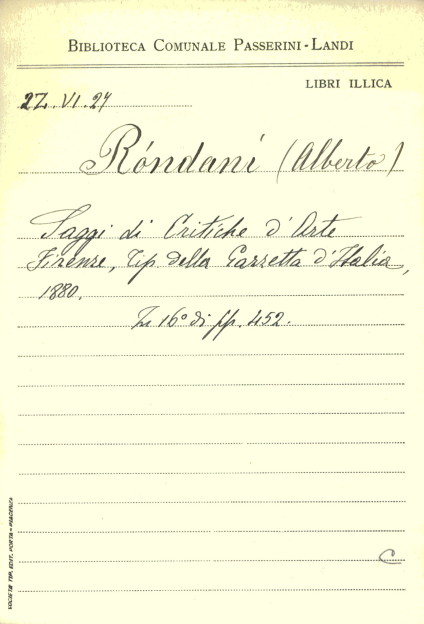 BIBLIOTECA COMUNALE PASSERINI-LANDI
LIBRI ILLICA
2Z.VI.24
Róndani (Alberto)
Saggi di Critiche d'Arte
Firenze, Tip. della Gazzetta d'Italia,
1880.
In 16° di pp. 452.
C
SOCIETÀ TIP. EDIT. PORTA - PIACENZA